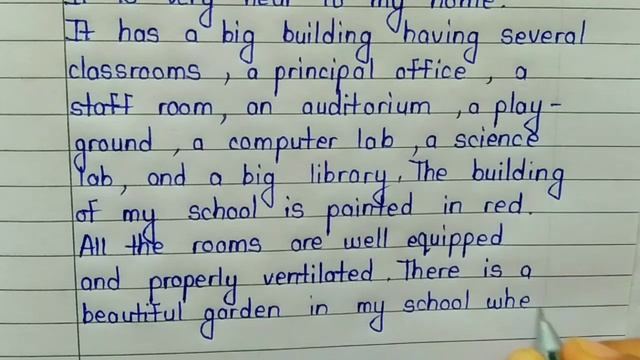 It is very near to my home.
It has a big building having several
classrooms, a principal office, a
staff room, an auditorium, a play-
ground, a computer lab, a science
lab, and a big library. The building
of my school is painted in red.
All the rooms are well equipped
and properly ventilated. There is a
beautiful garden in my school whe